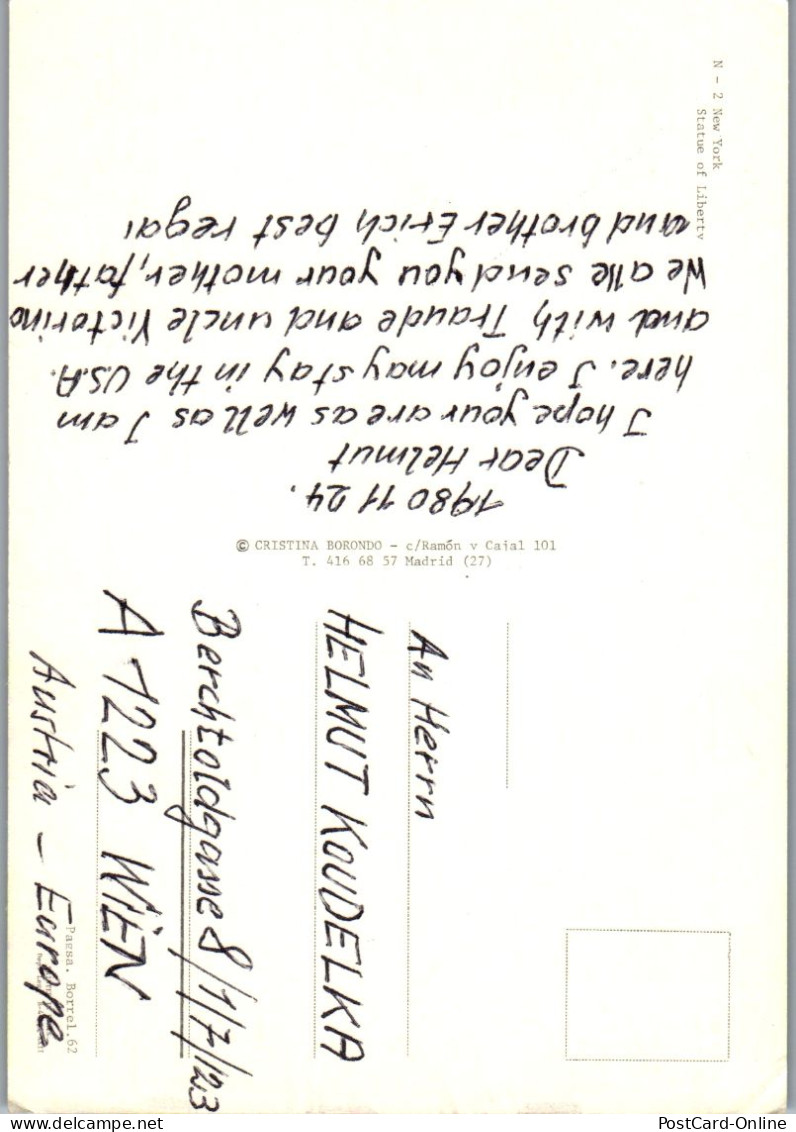 N - 2 New York
Statue of Liberty
1980 11 24.
Dear Helmut
I hope your are as well as I am
here. I enjoy may stay in the U.S.A.
and with Traude and uncle Victorino
We alle send you your mother, father
and brother Erich best regar
© CRISTINA BORONDO - c/Ramón y Cajal 101
T. 416 68 57 Madrid (27)
An Herrn
HELMUT KOUDELKA
Berchtoldgasse 8/1/7/123
A 1223 WIEN
Austria - Europe
Paesa. Borrel.62
PostCard-Online